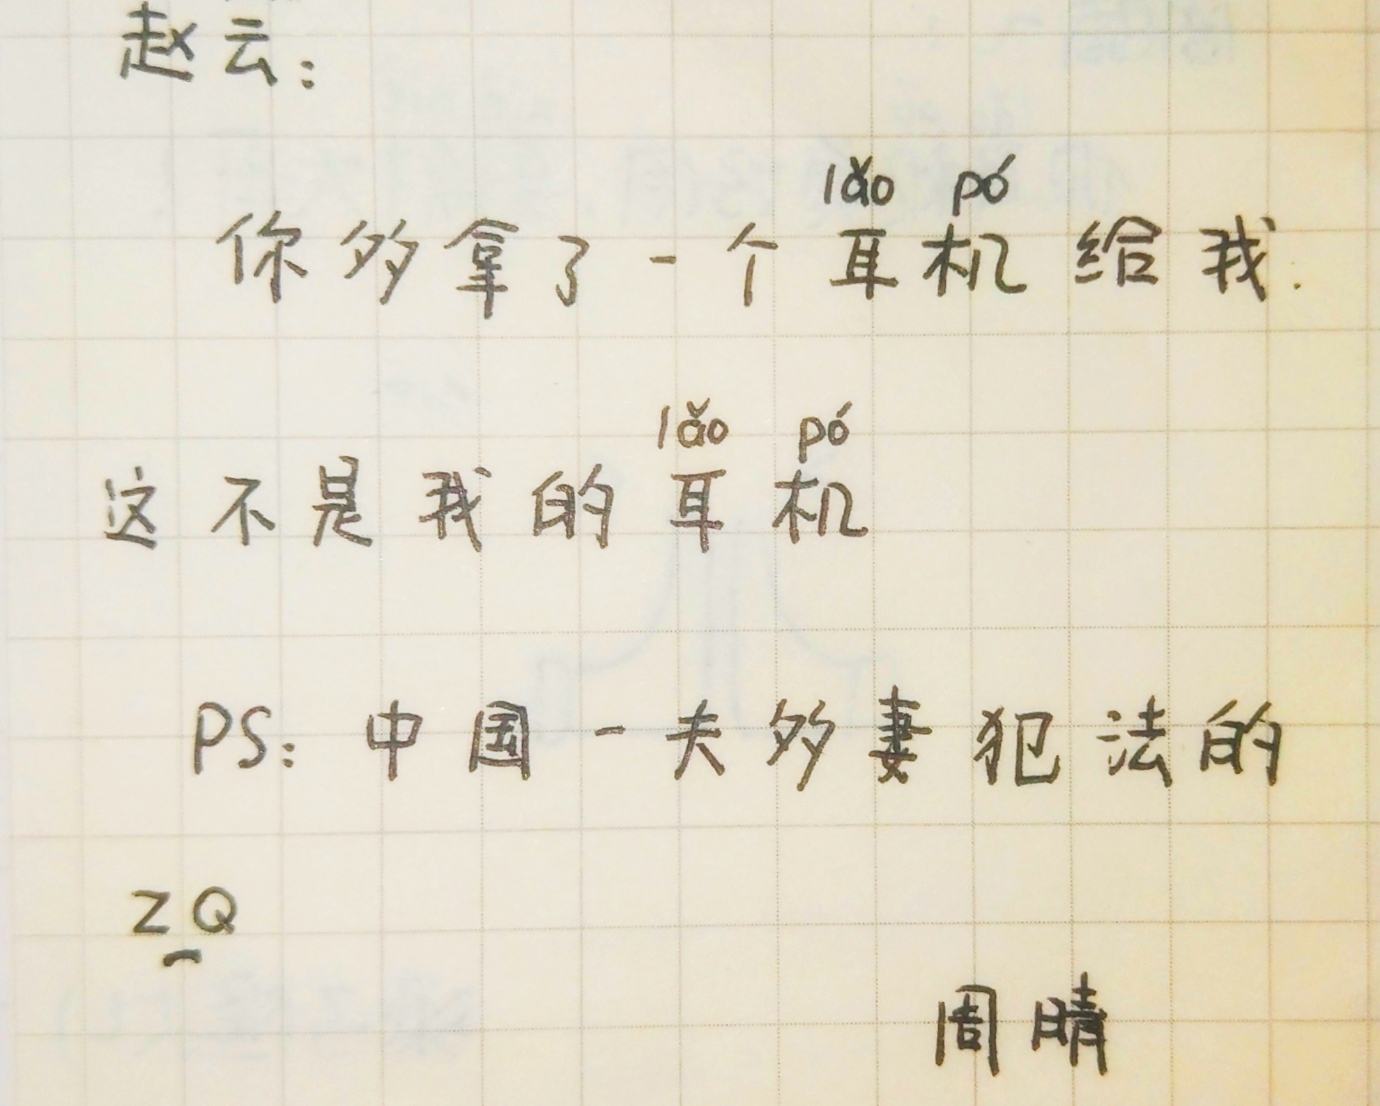 赵云：
lǎo pó
你多拿了一个耳机给我.
lǎo pó
这不是我的耳机
PS：中国一夫多妻犯法的
Z Q
周晴